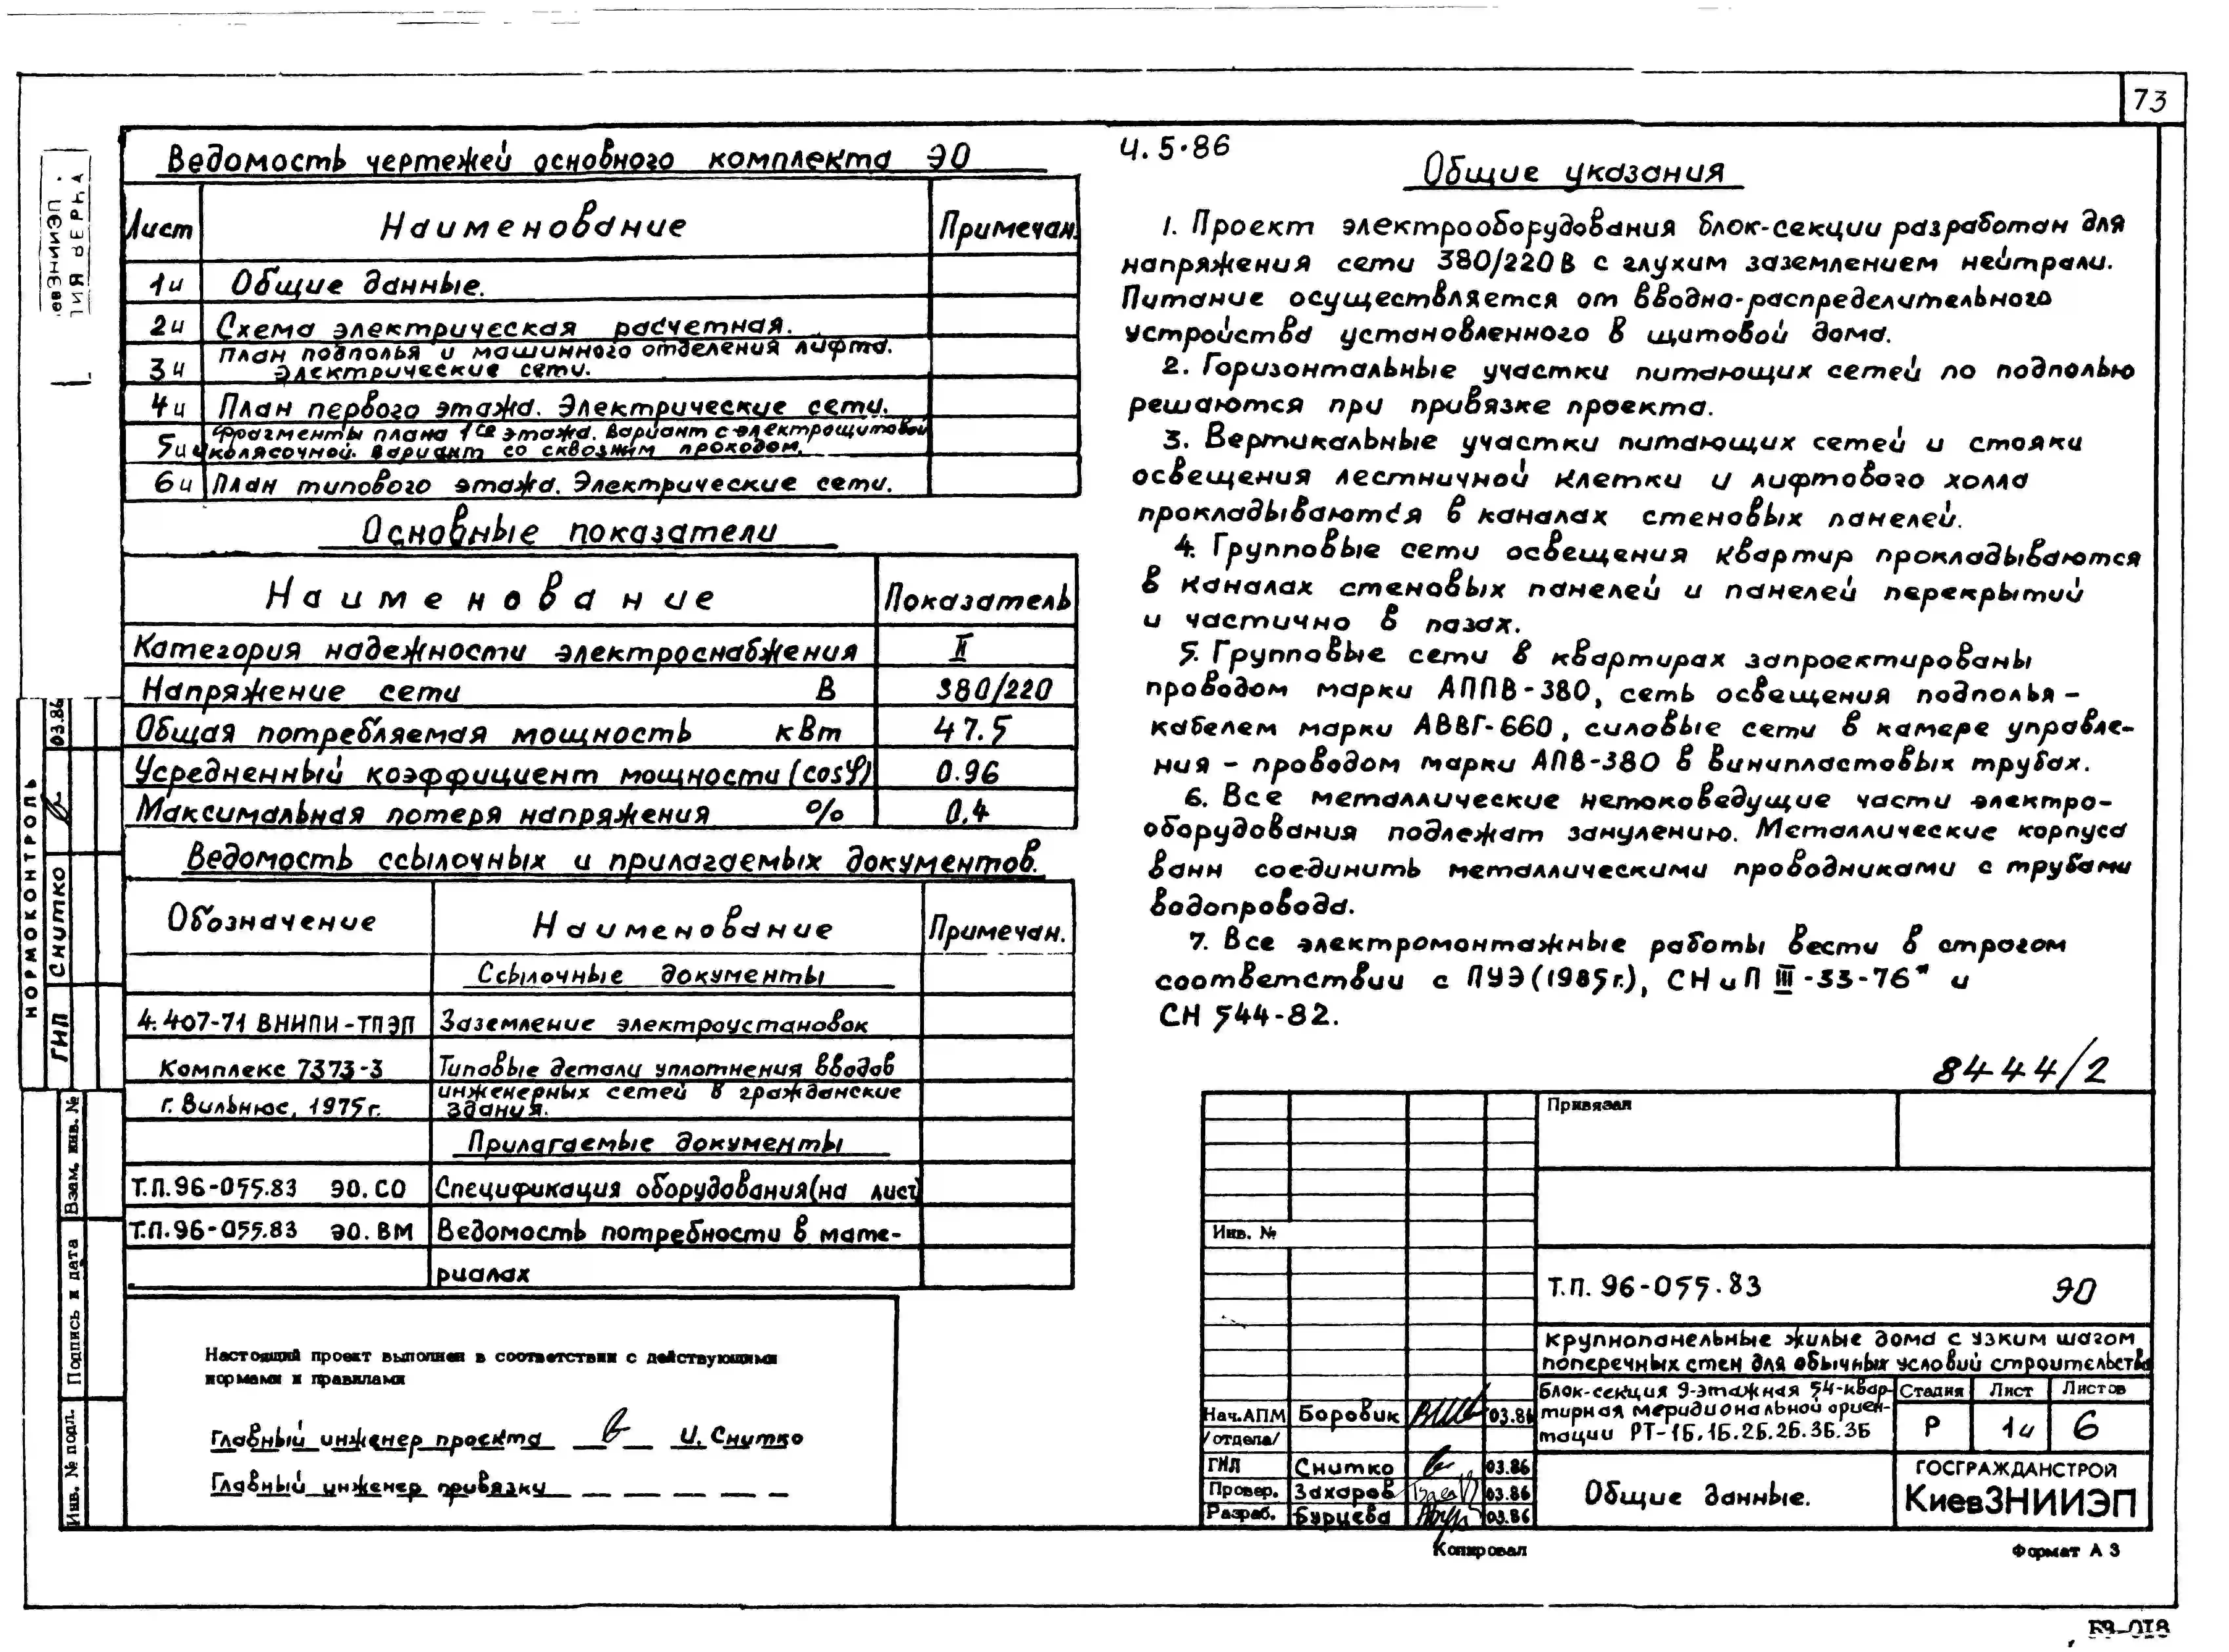 73
Ведомость чертежей основного комплекта ЭО
Лист Наименование Примечан.
1и Общие данные.
2и Схема электрическая расчетная.
3и План подполья и машинного отделения лифта.
Электрические сети.
4и План первого этажа. Электрические сети.
5и Фрагменты плана 1го этажа. Вариант с электрощитовой
и колясочной. Вариант со сквозным проходом.
6и План типового этажа. Электрические сети.
Основные показатели
Наименование Показатель
Категория надежности электроснабжения II
Напряжение сети В 380/220
Общая потребляемая мощность кВт 47.5
Усредненный коэффициент мощности (cosφ) 0.96
Максимальная потеря напряжения % 0.4
Ведомость ссылочных и прилагаемых документов.
Обозначение Наименование Примечан.
Ссылочные документы
4.407-71 ВНИПИ-ТПЭП Заземление электроустановок
Комплекс 7373-3 Типовые детали уплотнения вводов
г. Вильнюс, 1975г. инженерных сетей в гражданские
здания.
Прилагаемые документы
Т.П.96-055.83 ЭО.СО Спецификация оборудования(на лист
Т.П.96-055.83 ЭО.ВМ Ведомость потребности в мате-
риалах
Настоящий проект выполнен в соответствии с действующими
нормами и правилами
Главный инженер проекта И. Снитко
Главный инженер привязки
Ч.5.86
Общие указания
1. Проект электрооборудования блок-секции разработан для
напряжения сети 380/220В с глухим заземлением нейтрали.
Питание осуществляется от вводно-распределительного
устройства установленного в щитовой дома.
2. Горизонтальные участки питающих сетей по подполью
решаются при привязке проекта.
3. Вертикальные участки питающих сетей и стояки
освещения лестничной клетки и лифтового холла
прокладываются в каналах стеновых панелей.
4. Групповые сети освещения квартир прокладываются
в каналах стеновых панелей и панелей перекрытий
и частично в пазах.
5. Групповые сети в квартирах запроектированы
проводом марки АППВ-380, сеть освещения подполья -
кабелем марки АВВГ-660, силовые сети в камере управле-
ния - проводом марки АПВ-380 в винипластовых трубах.
6. Все металлические нетоковедущие части электро-
оборудования подлежат занулению. Металлические корпуса
ванн соединить металлическими проводниками с трубами
водопровода.
7. Все электромонтажные работы вести в строгом
соответствии с ПУЭ(1985г.), СНиП III-33-76* и
СН 544-82.
8444/2
Привязал
Инв. №
Т.П. 96-055.83 ЭО
Крупнопанельные жилые дома с узким шагом
поперечных стен для обычных условий строительства
Блок-секция 9-этажная 54-квар-
тирная меридиональной ориен-
тации РТ-1Б.1Б.2Б.2Б.3Б.3Б
Стадия Лист Листов
Р 1и 6
Нач.АПМ Боровик 03.86
/отдела/
ГИП Снитко 03.86
Провер. Захаров 03.86
Разраб. Бурцева 03.86
Общие данные.
ГОСГРАЖДАНСТРОЙ
КиевЗНИИЭП
Копировал Формат А 3
НОРМОКОНТРОЛЬ
ГИП Снитко 03.86
Взам. инв. №
Подпись и дата
Инв. № подл.